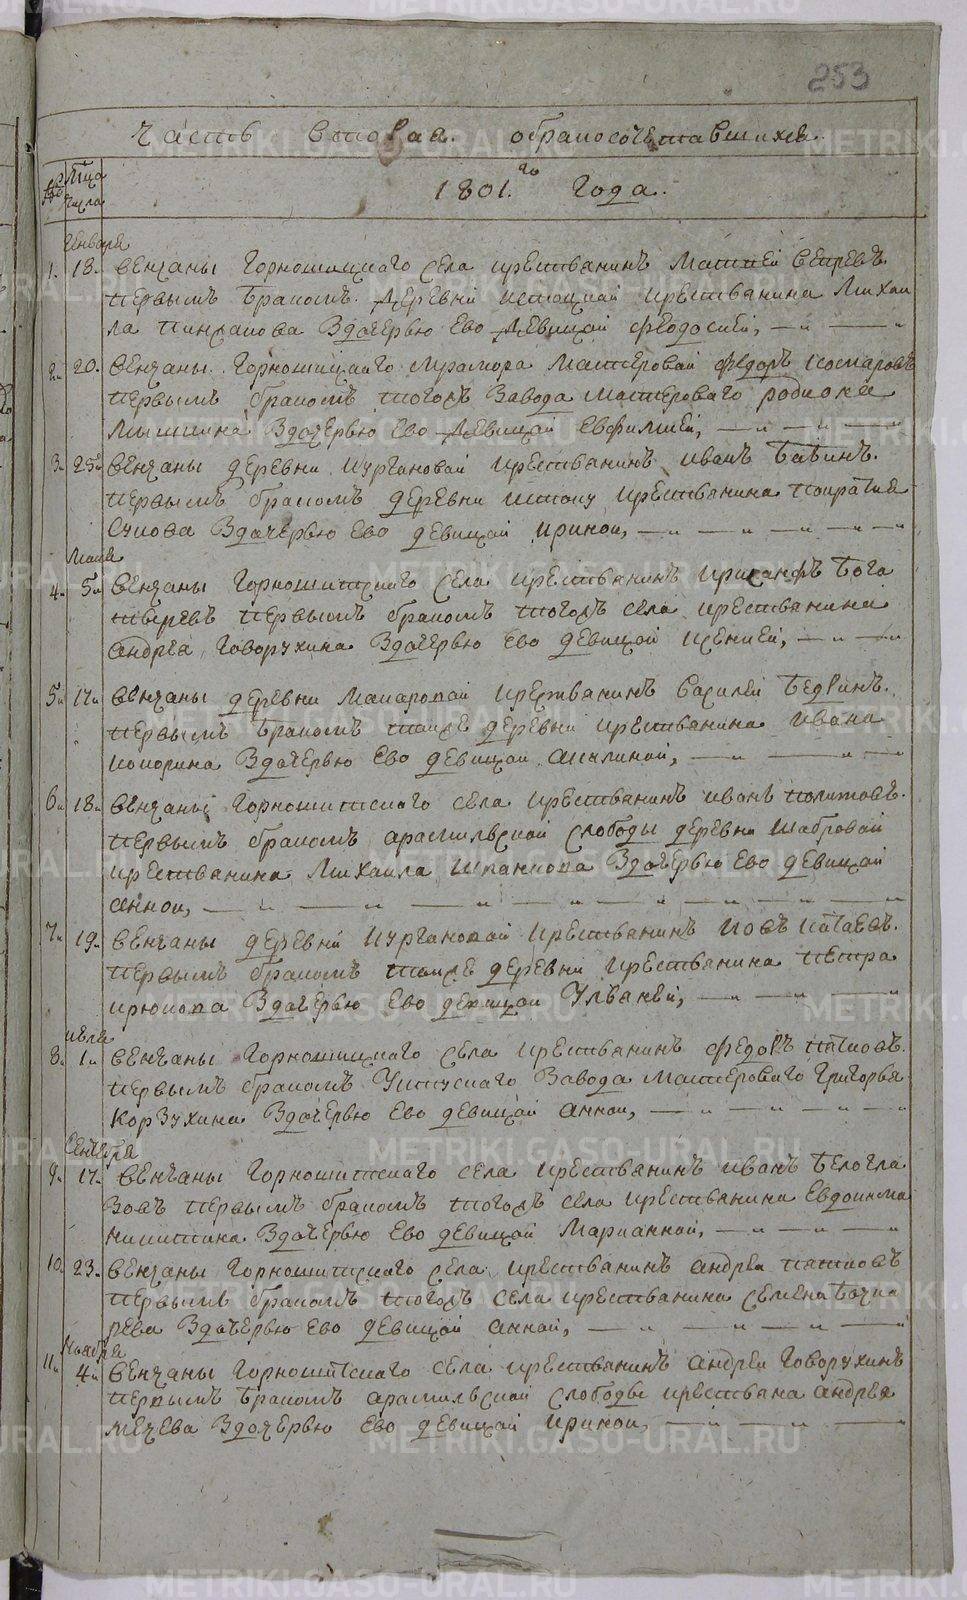 253
Часть вторая обракосочетавшихся
№ М͠ца Числа
1801.го Года.
Генваря
1. 13. венчаны Горношицкаго села крестьянинъ Матвей
первымъ бракомъ. Деревни крестьянина Михаи
ла Здочерью Ево Девицой Феодосией,
2. 20. венчаны Горношицкаго Мрамора Мастеровой Федоръ Комаровъ
первымъ бракомъ тогожъ Завода мастероваго родиона
Мышкина Здочерью Ево Девицой Евфимией,
3. 25. венчаны деревни Кургановой крестьянинъ иванъ Бабинъ.
первымъ бракомъ деревни крестьянина
Здочерью Ево девицой ириной,
Маия
4. 5. венчаны Горношитскаго села крестьянинъ Бога
тыревъ первымъ бракомъ тогожъ села крестьянина
андрея Говорухина Здочерью Ево девицой Ксенией,
5. 17. венчаны деревни Макаровой крестьянинъ Василей
первымъ бракомъ тоижъ деревни крестьянина ивана
Здочерью Ево девицой акилиной,
6. 18. венчаны Горношитскаго села крестьянинъ иванъ
первымъ бракомъ арамильской слободы деревни Шабровой
крестьянина Михаила Здочерью Ево девицой
анной,
7. 19. венчаны деревни Кургановой крестьянинъ иовъ
первымъ бракомъ тоиже деревни крестьянина петра
крюкова Здочерью Ево девицой Ульяней,
июля
8. 1. венчаны Горношицкаго села крестьянинъ Федоръ
первымъ бракомъ Уктускаго Завода Мастероваго Григорья
Корзухина Здочерью Ево девицой анной,
Сентября
9. 17. венчаны Горношитскаго села крестьянинъ иванъ Белогла
зовъ первымъ бракомъ тогожъ села крестьянина Евдокима
никитина Здочерью Ево девицой Марианной,
10. 23. венчаны Горношитскаго села крестьянинъ андрей
первымъ бракомъ тогожъ села крестьянина семена
рева Здочерью Ево девицой анной,
Ноября
11. 4. венчаны Горношитскаго села крестьянинъ андрей Говорухинъ
первымъ бракомъ арамильской слободы крестьяна андрея
Мечева Здочерью Ево девицой ириной,
METRIKI.GASO-URAL.RU